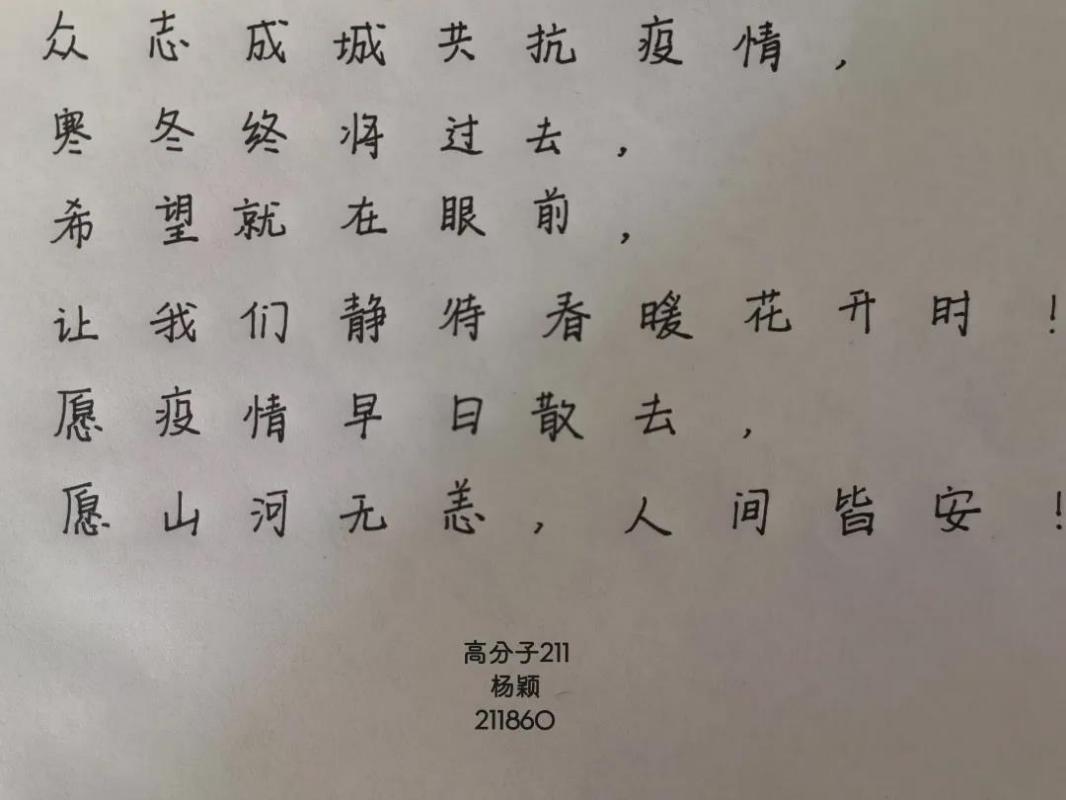 众志成城共抗疫情，
寒冬终将过去，
希望就在眼前，
让我们静待春暖花开时！
愿疫情早日散去，
愿山河无恙，人间皆安！
高分子211
杨颖
211860